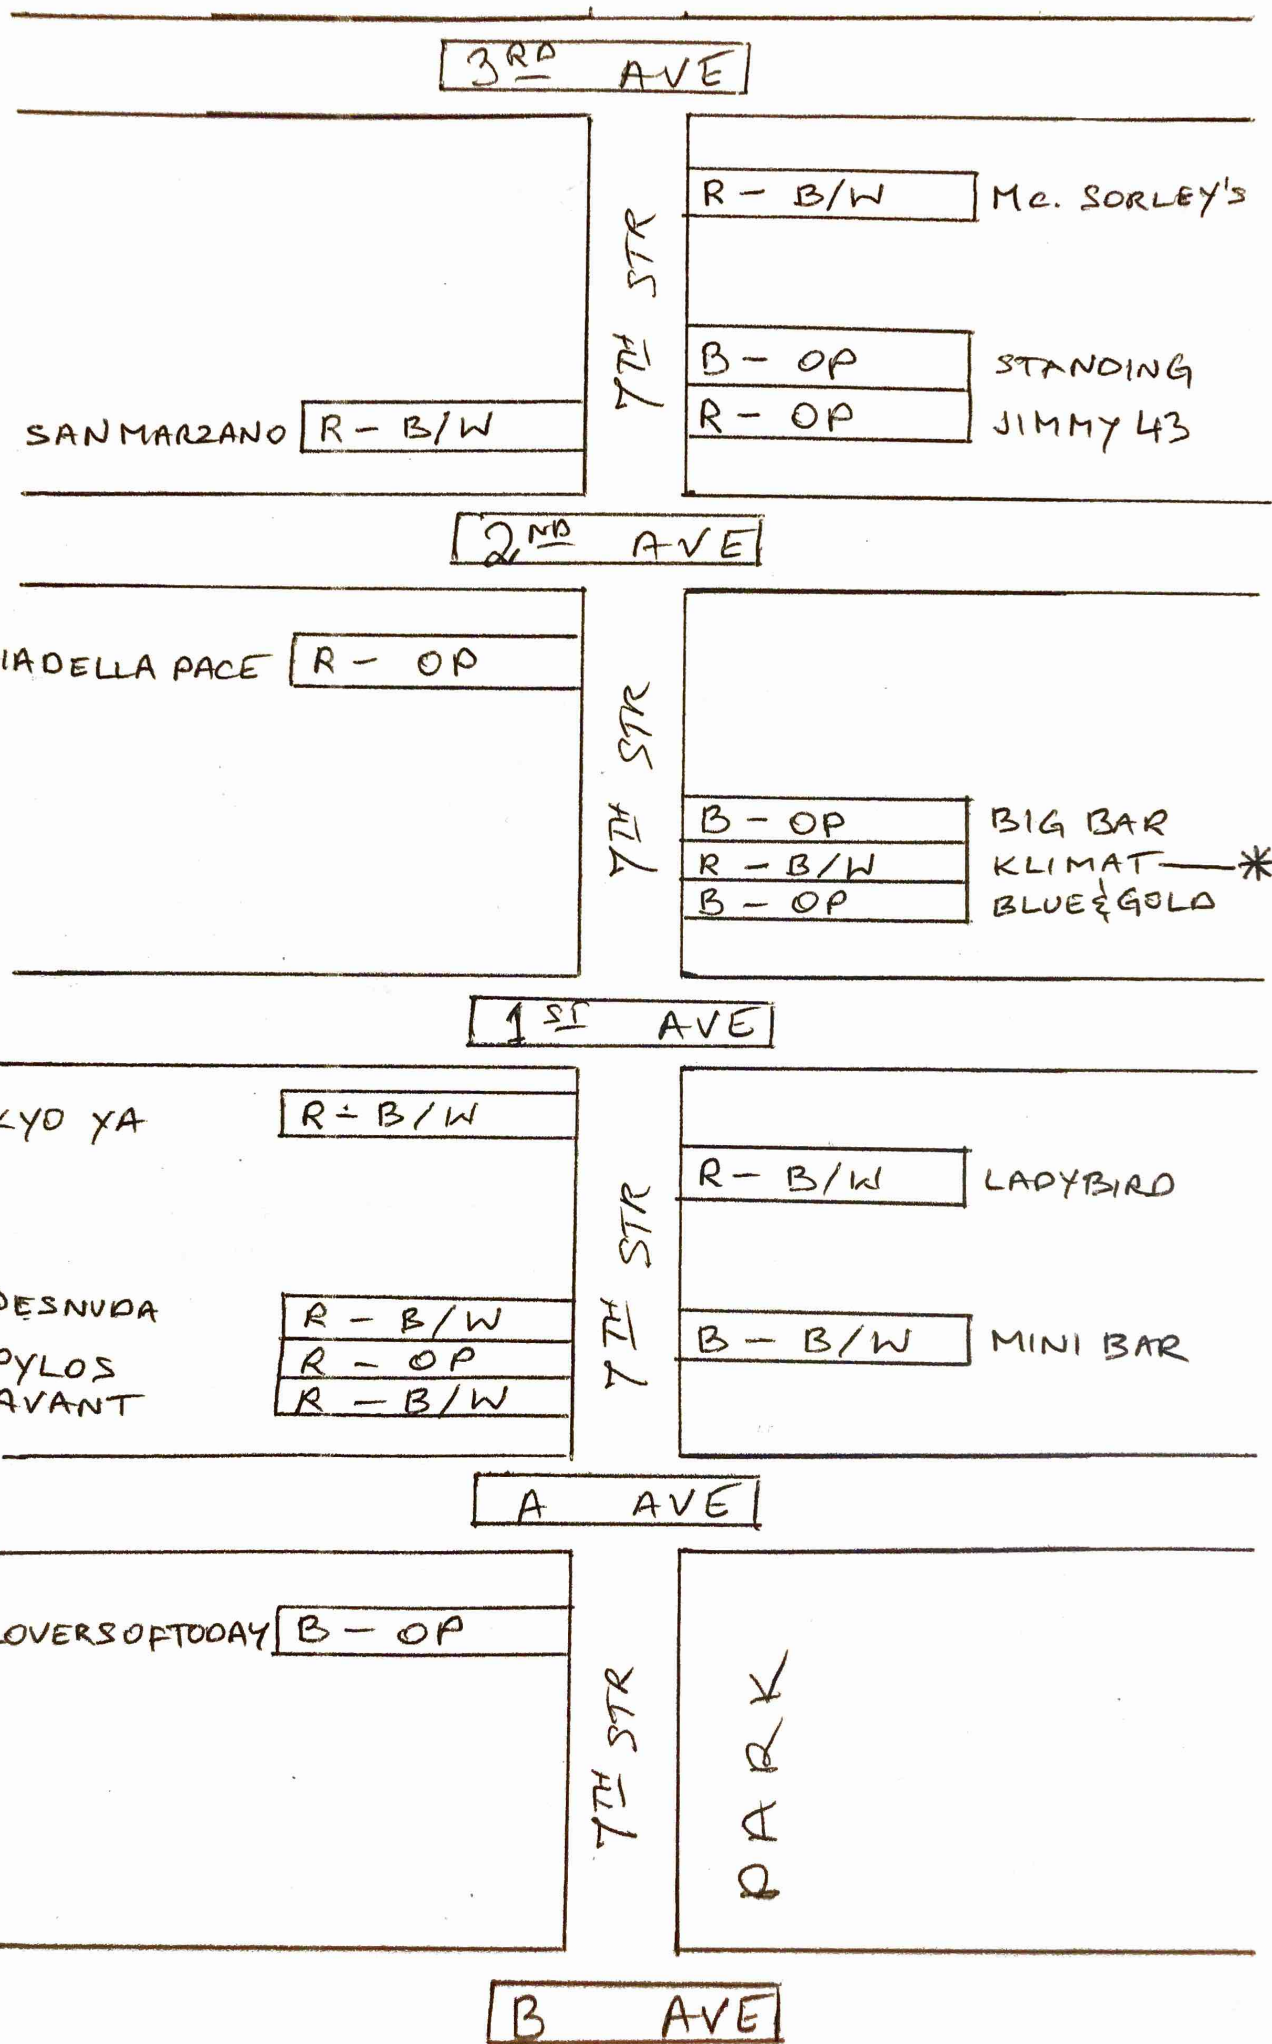 3RD AVE
R - B/W MC. SORLEY'S
7TH STR
B - OP STANDING
R - OP JIMMY 43
SAN MARZANO R - B/W
2ND AVE
IA DELLA PACE R - OP
7TH STR
B - OP BIG BAR
R - B/W KLIMAT — *
B - OP BLUE & GOLD
1ST AVE
KYO YA R - B/W
R - B/W LADYBIRD
7TH STR
DESNUDA R - B/W
B - B/W MINI BAR
PYLOS R - OP
AVANT R - B/W
A AVE
LOVERS OF TODAY B - OP
7TH STR
PARK
B AVE